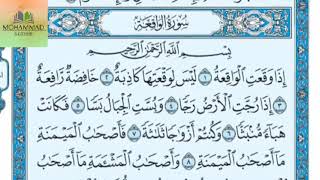 MOHAMMAD
سُورَةُ الوَاقِعَةِ
بِسْمِ اللَّهِ الرَّحْمَٰنِ الرَّحِيمِ
إِذَا وَقَعَتِ الْوَاقِعَةُ ١ لَيْسَ لِوَقْعَتِهَا كَاذِبَةٌ ٢ خَافِضَةٌ رَّافِعَةٌ
٣ إِذَا رُجَّتِ الْأَرْضُ رَجًّا ٤ وَبُسَّتِ الْجِبَالُ بَسًّا ٥ فَكَانَتْ
هَبَاءً مُّنبَثًّا ٦ وَكُنتُمْ أَزْوَاجًا ثَلَاثَةً ٧ فَأَصْحَابُ الْمَيْمَنَةِ
مَا أَصْحَابُ الْمَيْمَنَةِ ٨ وَأَصْحَابُ الْمَشْئَمَةِ مَا أَصْحَابُ